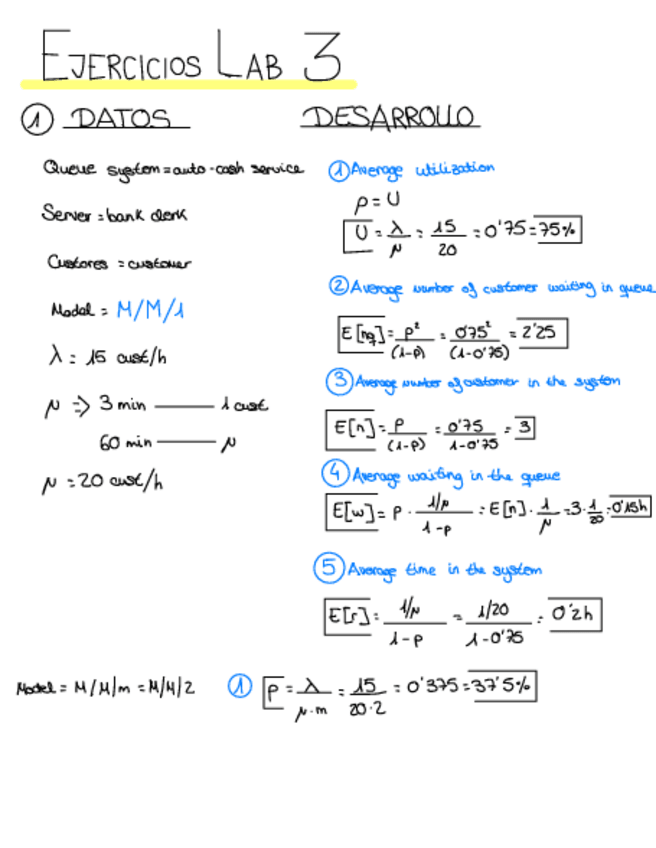 EJERCICIOS LAB 3
① DATOS
Queue system = auto-cash service
Server = bank clerk
Custores = customer
Model = M/M/1
λ = 15 cust/h
μ => 3 min —— 1 cust
60 min —— μ
μ = 20 cust/h
DESARROLLO
① Average utilization
ρ = U
U = λ/μ = 15/20 = 0'75 = 75%
② Average number of customer waiting in queue
E[nq] = ρ²/(1-ρ) = 0'75²/(1-0'75) = 2'25
③ Average number of customer in the system
E[n] = ρ/(1-ρ) = 0'75/1-0'75 = 3
④ Average waiting in the queue
E[w] = ρ · 1/μ/1-ρ = E[n] · 1/μ = 3 · 1/20 = 0'15h
⑤ Average time in the system
E[r] = 1/μ/1-ρ = 1/20/1-0'75 = 0'2h
Model = M/M/m = M/M/2
① ρ = λ/μ·m = 15/20·2 = 0'375 = 37'5%